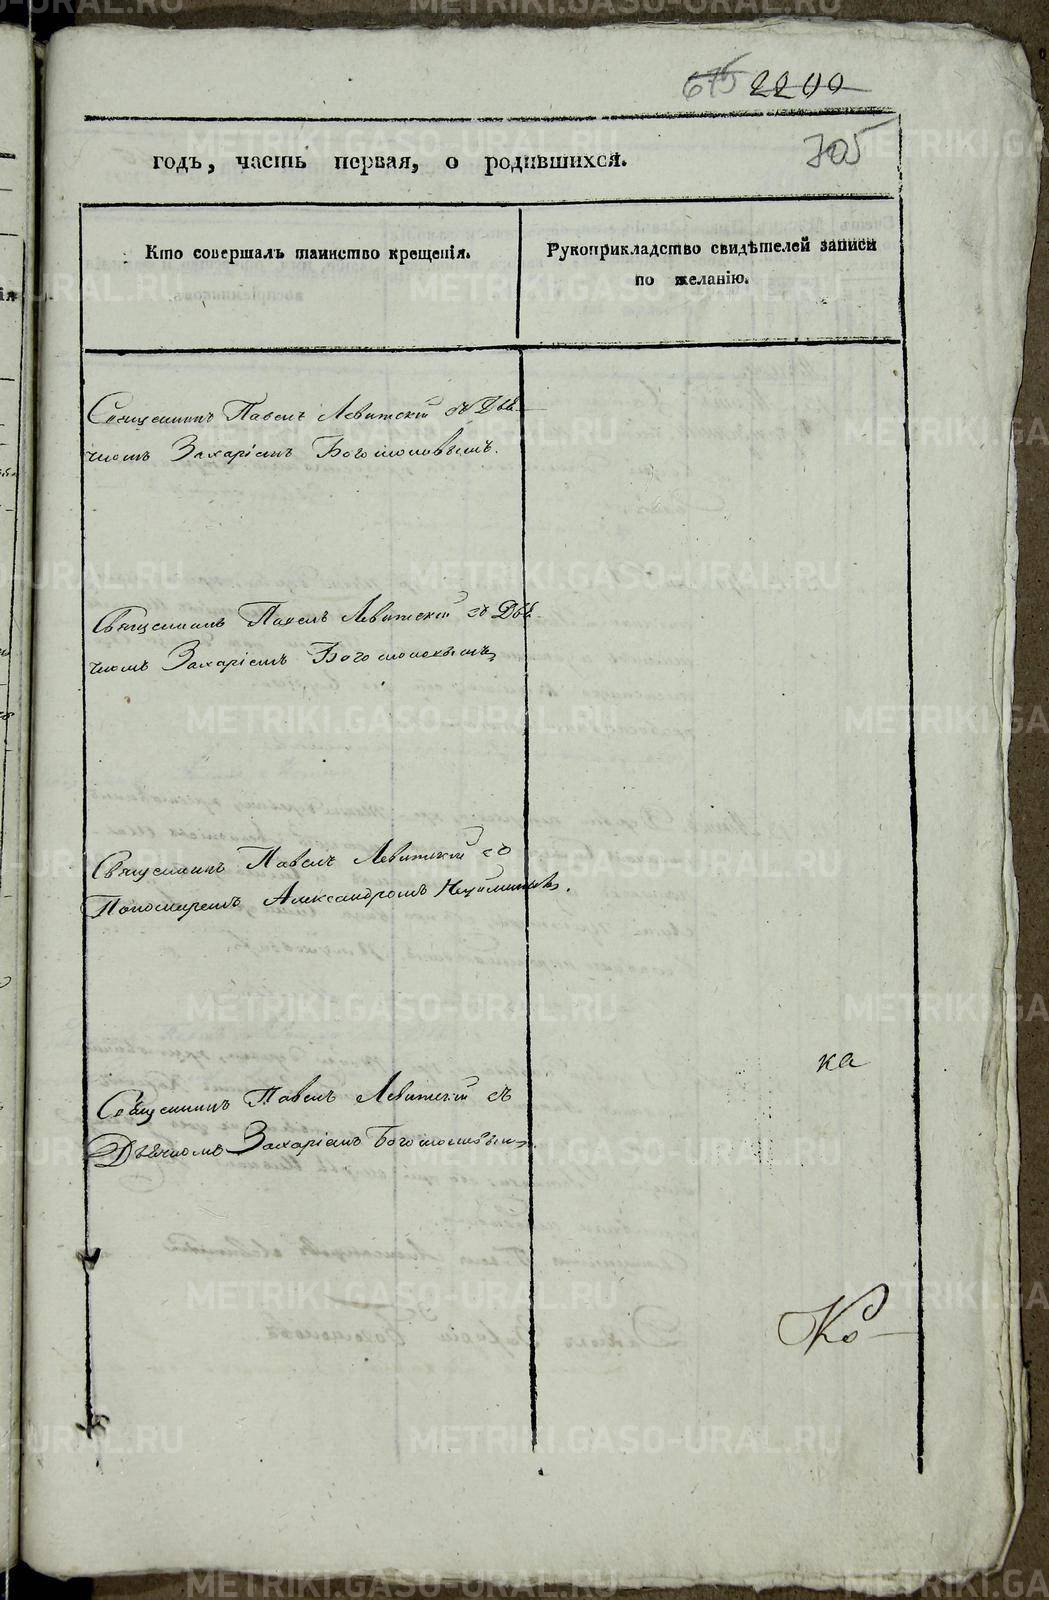 675 2200
705
годъ, часть первая, о родившихся.
Кто совершалъ таинство крещенія.
Рукоприкладство свидѣтелей записи
по желанію.
Священникъ Павелъ Левитскій съ Дьяч-
комъ Захаріемъ Богомоловымъ.
Священникъ Павелъ Левитскій съ Дьяч-
комъ Захаріемъ Богомоловымъ
Священникъ Павелъ Левитскій съ
Пономаремъ Александромъ
Священникъ Павелъ Левитскій съ
Дьячкомъ Захаріемъ Богомоловымъ.
ка
Ко
METRIKI.GASO-URAL.RU